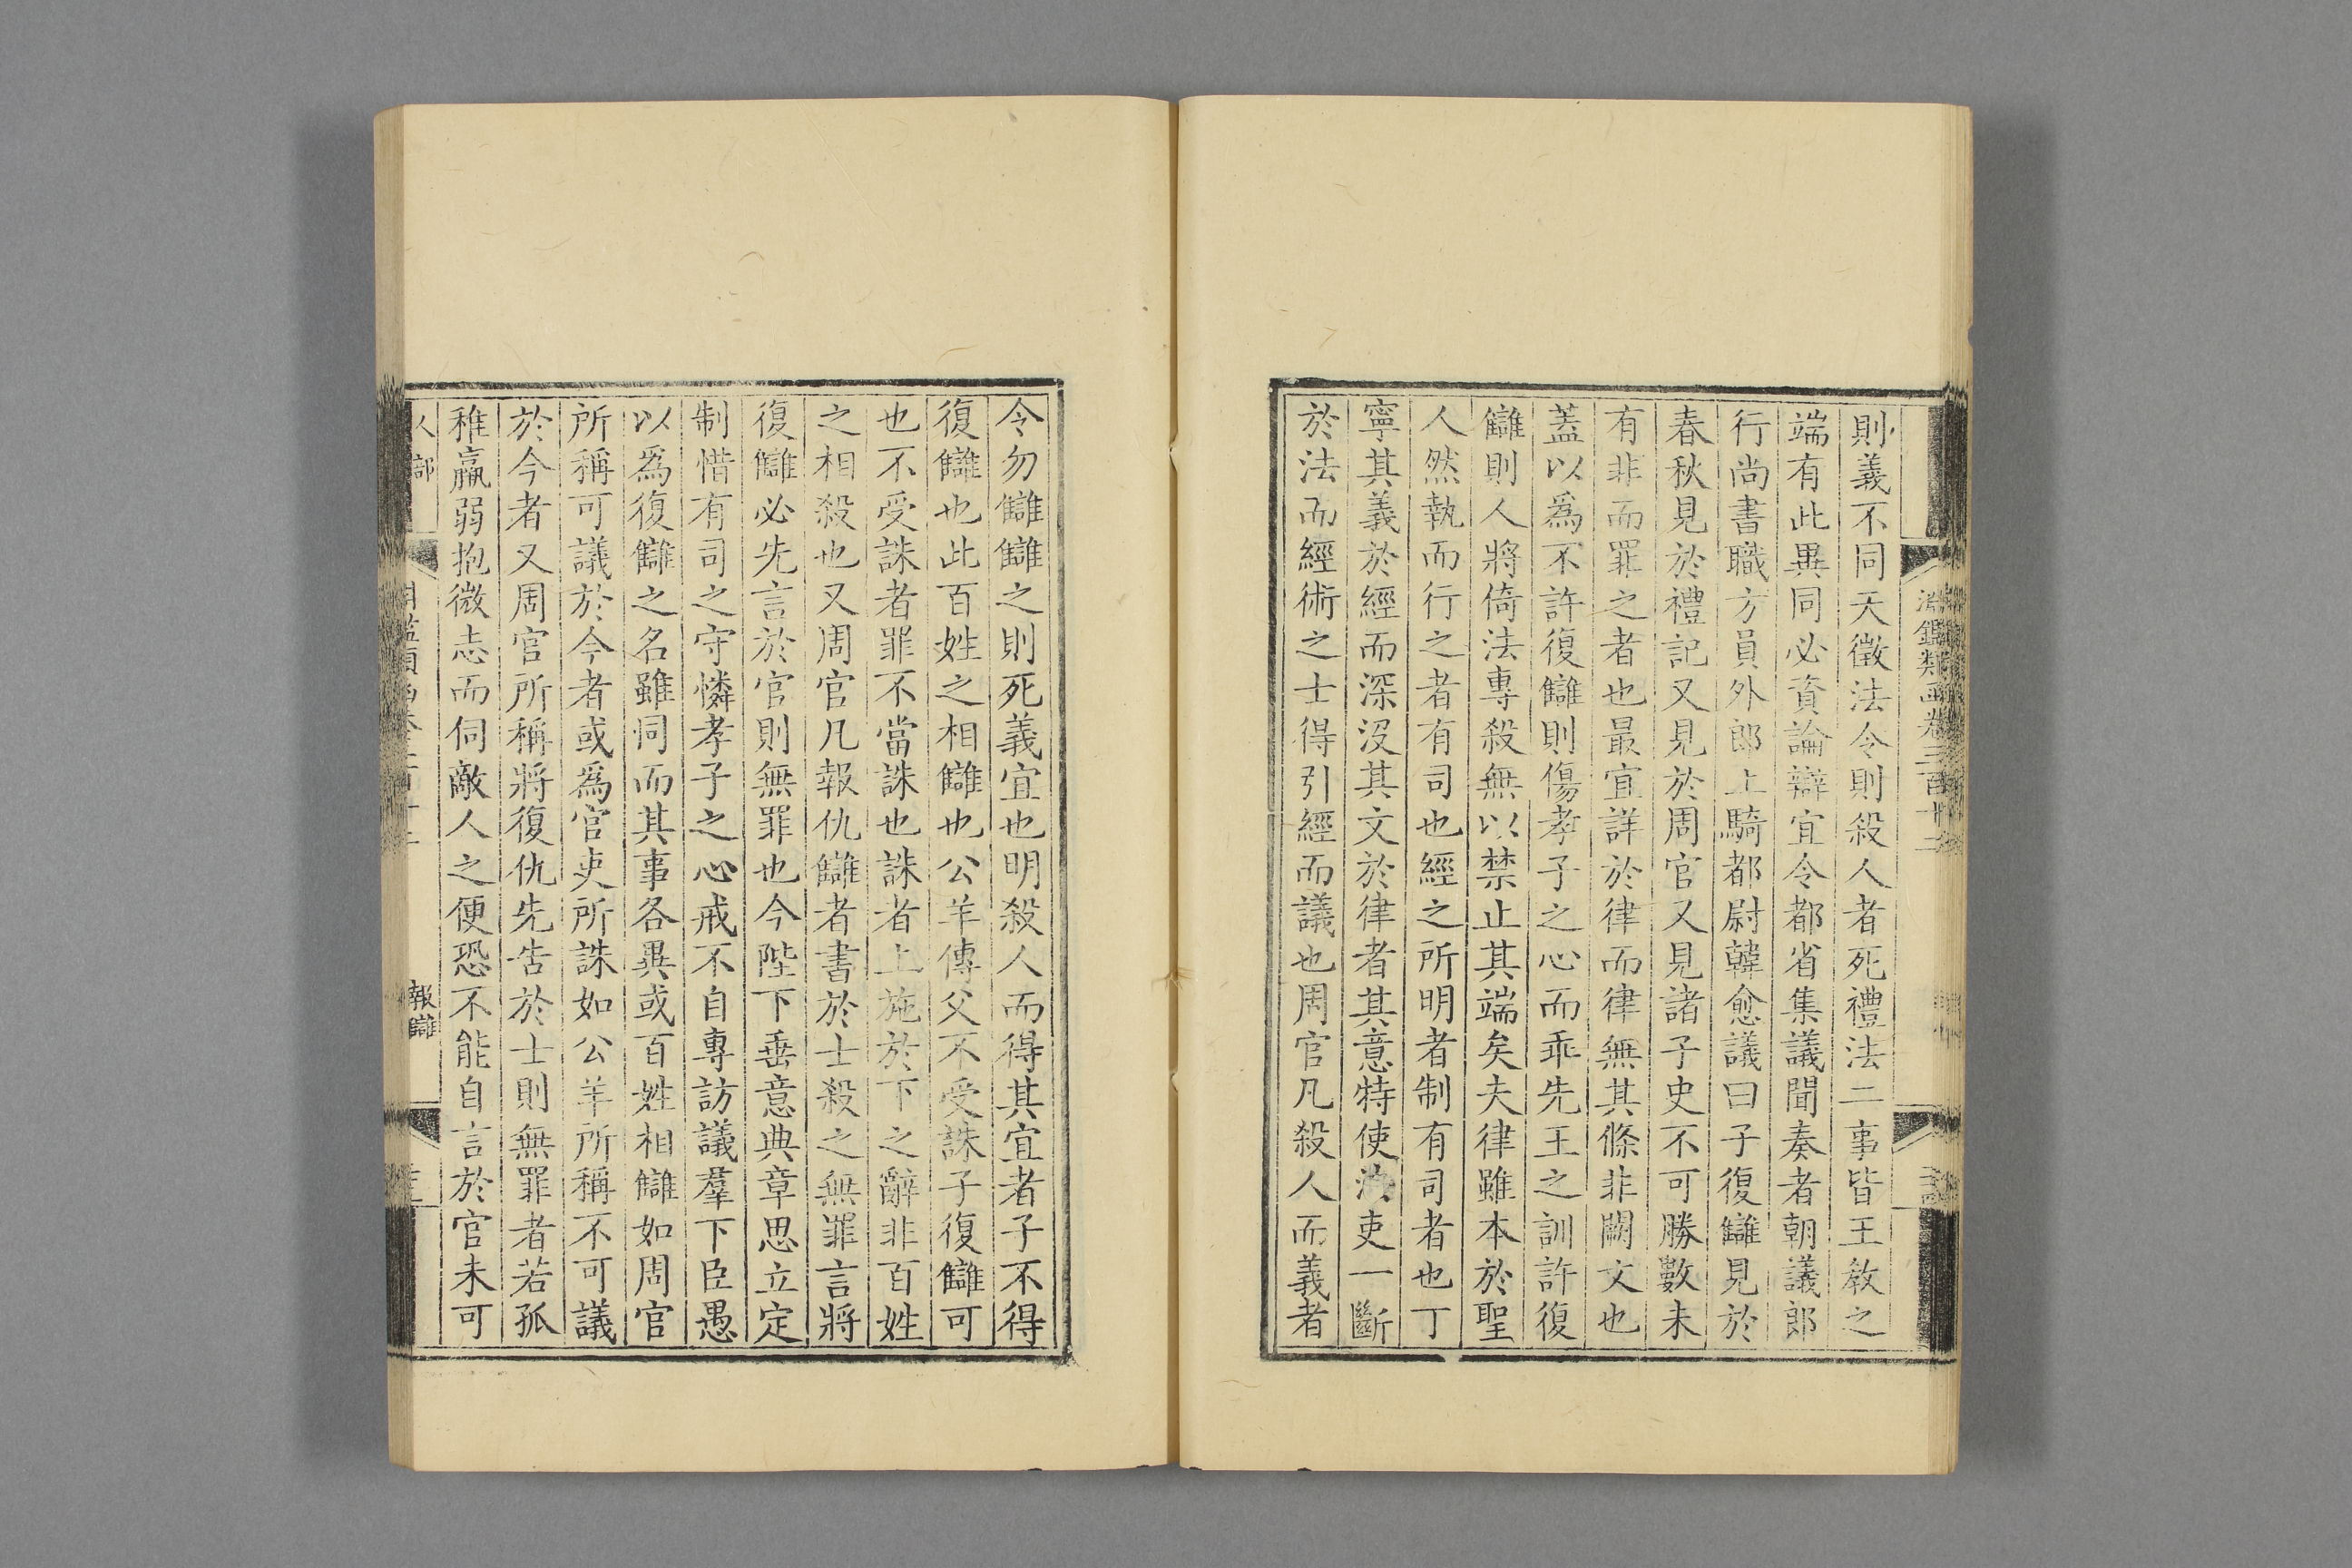 淵鑑類函卷三百十二
則義不同天徵法令則殺人者死禮法二事皆王教之
端有此異同必資論辯宜令都省集議聞奏者朝議郎
行尚書職方員外郎上騎都尉韓愈議曰子復讎見於
春秋見於禮記又見於周官又見諸子史不可勝數未
有非而罪之者也最宜詳於律而律無其條非闕文也
蓋以為不許復讎則傷孝子之心而乖先王之訓許復
讎則人將倚法專殺無以禁止其端矣夫律雖本於聖
人然執而行之者有司也經之所明者制有司者也丁
寧其義於經而深沒其文於律者其意特使法吏一斷
於法而經術之士得引經而議也周官凡殺人而義者
令勿讎讎之則死義宜也明殺人而得其宜者子不得
復讎也此百姓之相讎也公羊傳父不受誅子復讎可
也不受誅者罪不當誅也誅者上施於下之辭非百姓
之相殺也又周官凡報仇讎者書於士殺之無罪言將
復讎必先言於官則無罪也今陛下垂意典章思立定
制惜有司之守憐孝子之心戒不自專訪議羣下臣愚
以為復讎之名雖同而其事各異或百姓相讎如周官
所稱可議於今者或為官吏所誅如公羊所稱不可議
於今者又周官所稱將復仇先告於士則無罪者若孤
稚羸弱抱微志而伺敵人之便恐不能自言於官未可
人部
報讎